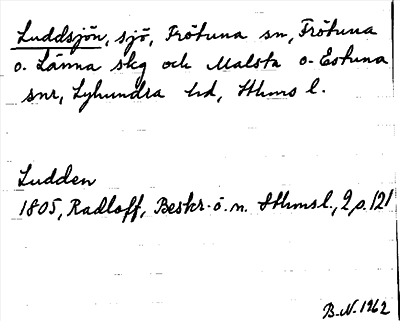 Luddsjön, sjö, Frötuna sn, Frötuna
o. Länna skg och Malsta o. Estuna
snr, Lyhundra hd, Sthms l.
Ludden
1805, Radloff, Beskr. ö. n. Sthmsl., 2, s. 121
B.N. 1962